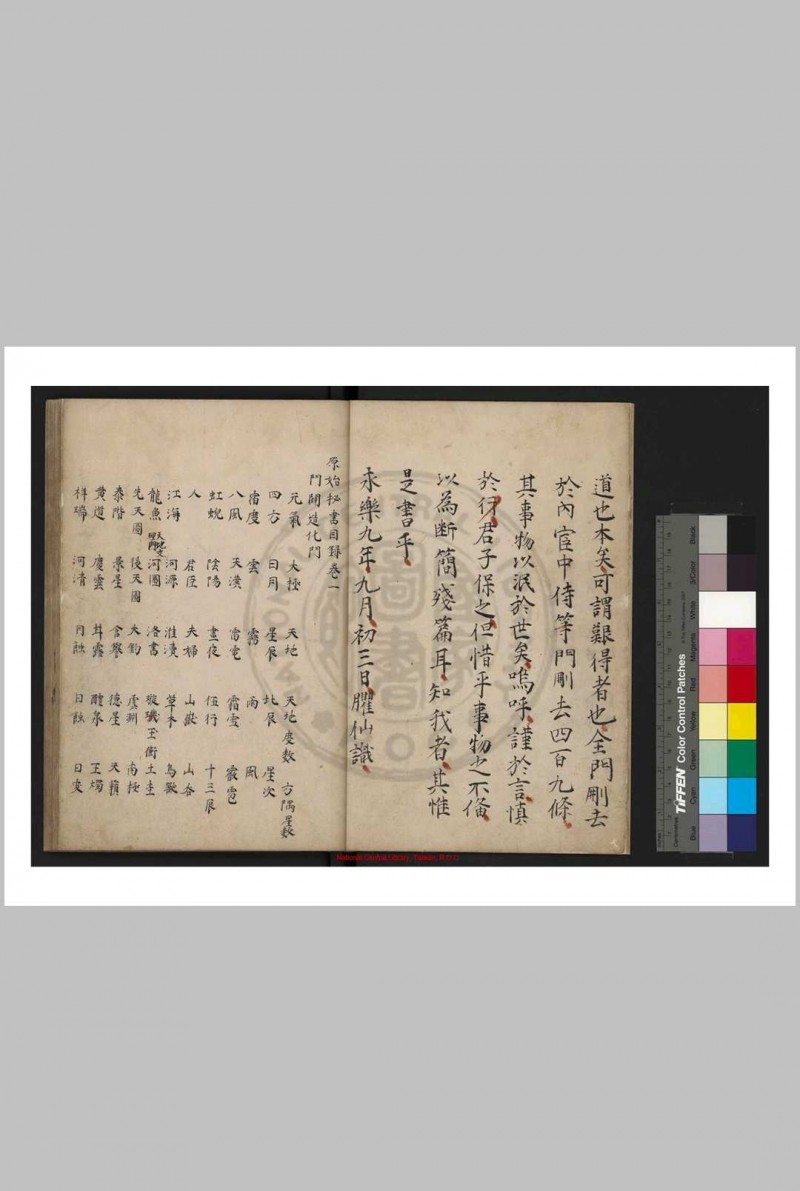 道也本矣可謂艱得者也全門刪去
於內宦中侍等門刪去四百九條
其事物以泯於世矣嗚呼謹於言慎
於行君子保之但惜乎事物之不俻
以為断簡殘篇耳知我者其惟
是書乎
永樂九年九月初三日臞仙識
原始秘書目録卷一
門闢造化門
元氣 太極 天地 天地度数 方隅星数
四方 日月 星辰 北辰 星次
宿度 雲 霧 雨 風
八風 天漢 雷電 霜雪 霰雹
虹蜺 陰陽 晝夜 伍行 十三辰
人 君臣 夫婦 山嶽 山谷
江海 河源 淮瀆 草木 鳥獸
龍魚 河圖 洛書 璇璣玉衡 土圭
先天圖 後天圖 大鈞 虚淵 南極
泰階 景星 含譽 德星 天籟
黄道 慶雲 甘露 醴泉 玉燭
祥瑞 河清 月蝕 日蝕 日变
National Central Library, Taiwan, R.O.C
TIFFEN Color Control Patches
Blue Cyan Green Yellow Red Magenta White 3/Color Black